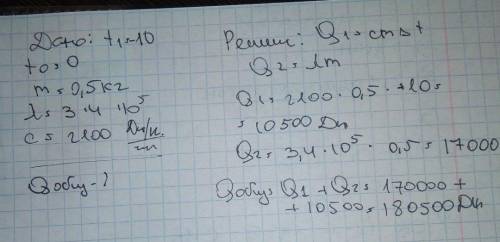 Дано: t₁ = -10
t0 = 0
m = 0,5 кг
λ = 3.4 · 10⁵
c = 2100 Дж/кг
Qобщ - ?
Решение: Q1 = cm∆t
Q2 = λm
Q1 = 2100 · 0.5 · +10 =
= 10500 Дж
Q2 = 3,4 · 10⁵ · 0,5 = 17000
Qобщ = Q1 + Q2 = 170000 +
+ 10500 = 180500 Дж